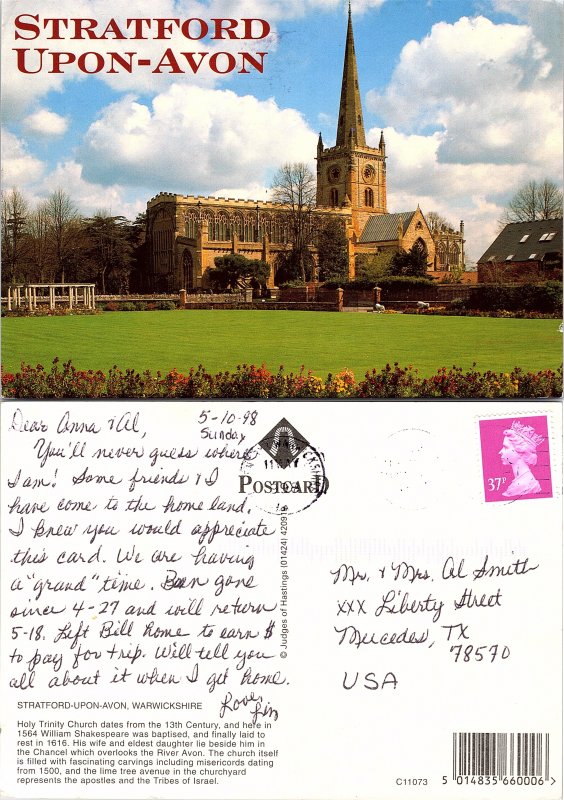 STRATFORD
UPON-AVON
Dear Anna & Al,
5-10-98
Sunday
You'll never guess where
I am! Some friends & I
have come to the home land.
I knew you would appreciate
this card. We are having
a "grand" time. Been gone
since 4-27 and will return
5-18. Left Bill home to earn $
to pay for trip. Will tell you
all about it when I get home.
Love,
Lin
POSTCARD
© Judges of Hastings (01424) 420919
37P
Mr. & Mrs. Al Smith
XXX Liberty Street
Mercedes, TX
78570
USA
STRATFORD-UPON-AVON, WARWICKSHIRE
Holy Trinity Church dates from the 13th Century, and here in
1564 William Shakespeare was baptised, and finally laid to
rest in 1616. His wife and eldest daughter lie beside him in
the Chancel which overlooks the River Avon. The church itself
is filled with fascinating carvings including misericords dating
from 1500, and the lime tree avenue in the churchyard
represents the apostles and the Tribes of Israel.
C11073
5 014835 660006 >